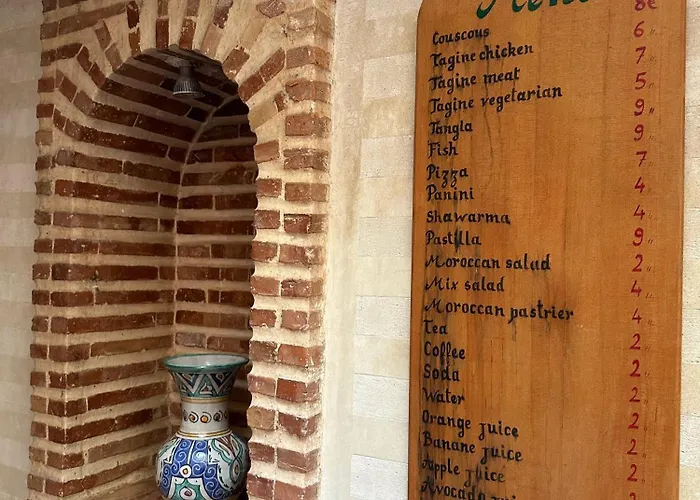 Menu
Couscous 8€
Tagine chicken 6 "
Tagine meat 7 "
Tagine vegetarian 5 "
Tangla 9 "
Fish 9 "
Pizza 7 "
Panini 4 "
Shawarma 4 "
Pastilla 9 "
Moroccan salad 2 "
Mix salad 4 "
Moroccan pastrier 4 "
Tea 2 "
Coffee 2 "
Soda 2 "
Water 2 "
Orange juice 2 "
Banane juice 2 "
Apple juice 2 "
Avocado